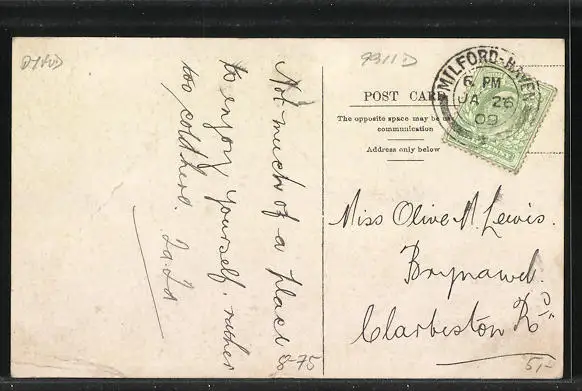 DYFED
9311 D
MILFORD-HAVEN
6 PM
JA 26
09
POST CARD
The opposite space may be us
communication
Address only below
Not much of a place
to enjoy yourself, rather
too cold here. Ta Ta
Miss Olive M. Lewis.
Brynawel.
Clarbeston Rd
8-75
5,-